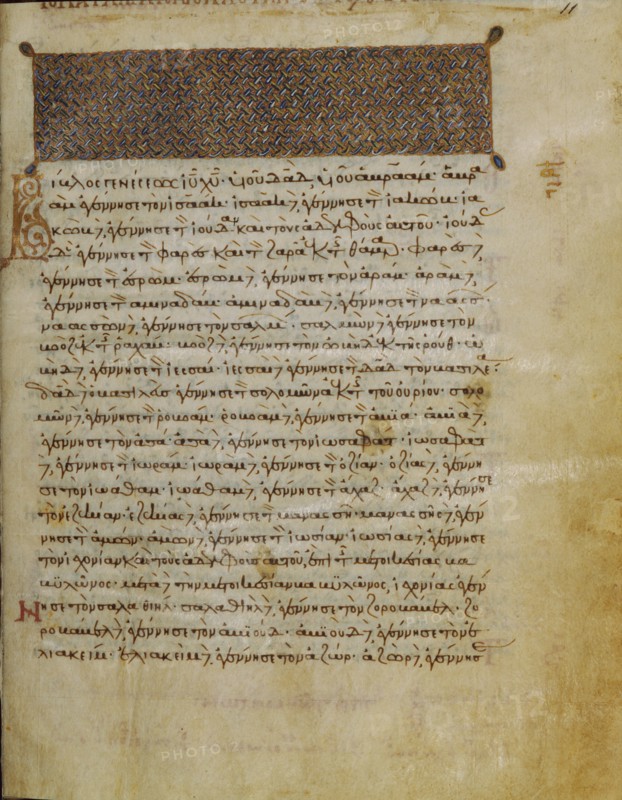 Βίβλος γενέσεως ἰῡ χῡ· υἱοῦ δᾱδ, υἱοῦ ἀβραάμ· ἀβρα
ὰμ ἐγέννησε τὸν ἰσαάκ· ἰσαὰκ δὲ, ἐγέννησε τὸν ἰακώβ· ἰα
κὼβ δὲ, ἐγέννησε τὸν ἰούδαν καὶ τοὺς ἀδελφοὺς αὐτοῦ· ἰούδ
δὲ ἐγέννησε τὸν φαρὲς καὶ τὸν ζαρὰ ἐκ τῆς θάμαρ· φαρὲς δὲ,
ἐγέννησε τὸν ἐσρώμ· ἐσρὼμ δὲ, ἐγέννησε τὸν ἀράμ· ἀρὰμ δὲ,
ἐγέννησε τὸν ἀμιναδάμ· ἀμιναδὰμ δὲ, ἐγέννησε τὸν ναασσ
ναασσὼν δὲ, ἐγέννησε τὸν σαλμ· σαλμὼν δὲ ἐγέννησε τὸν
βοὸζ ἐκ τῆς ῥαχάβ· βοὸζ δὲ, ἐγέννησε τὸν ὠβὴδ ἐκ τῆς ῥούθ· ὠ
βὴδ δὲ ἐγέννησε τὸν ἰεσσαί· ἰεσσαὶ δὲ ἐγέννησε τὸν δᾱδ τὸν βασιλέα·
δᾱδ δὲ ὁ βασιλεὺς ἐγέννησε τὸν σολομῶνα ἐκ τῆς τοῦ οὐρίου· σολο
μῶν δὲ, ἐγέννησε τὸν ῥοβοάμ· ῥοβοὰμ δὲ, ἐγέννησε τὸν ἀβιά· ἀβιὰ δὲ,
ἐγέννησε τὸν ἀσά· ἀσὰ δὲ, ἐγέννησε τὸν ἰωσαφάτ· ἰωσαφὰτ
δὲ, ἐγέννησε τὸν ἰωράμ· ἰωρὰμ δὲ, ἐγέννησε τὸν ὀζίαν· ὀζίας δὲ, ἐγέννη
σε τὸν ἰωάθαμ· ἰωάθαμ δὲ, ἐγέννησε τὸν ἄχαζ· ἄχαζ δὲ, ἐγέννησε
τὸν ἐζεκίαν· ἐζεκίας δὲ, ἐγέννησε τὸν μανασσῆν· μανασσῆς δὲ, ἐγέν
νησε τὸν ἀμών· ἀμὼν δὲ, ἐγέννησε τὸν ἰωσίαν· ἰωσίας δὲ, ἐγέννησε
τὸν ἰεχονίαν καὶ τοὺς ἀδελφοὺς αὐτοῦ, ἐπὶ τῆς μετοικεσίας βα
βυλῶνος· μετὰ δὲ τὴν μετοικεσίαν βαβυλῶνος, ἰεχονίας ἐγέν
νησε τὸν σαλαθιήλ· σαλαθιὴλ δὲ, ἐγέννησε τὸν ζοροβάβελ· ζο
ροβάβελ δὲ, ἐγέννησε τὸν ἀβιούδ· ἀβιοὺδ δὲ, ἐγέννησε τὸν ἐ
λιακείμ· ἐλιακεὶμ δὲ, ἐγέννησε τὸν ἀζώρ· ἀζὼρ δὲ, ἐγέννησε